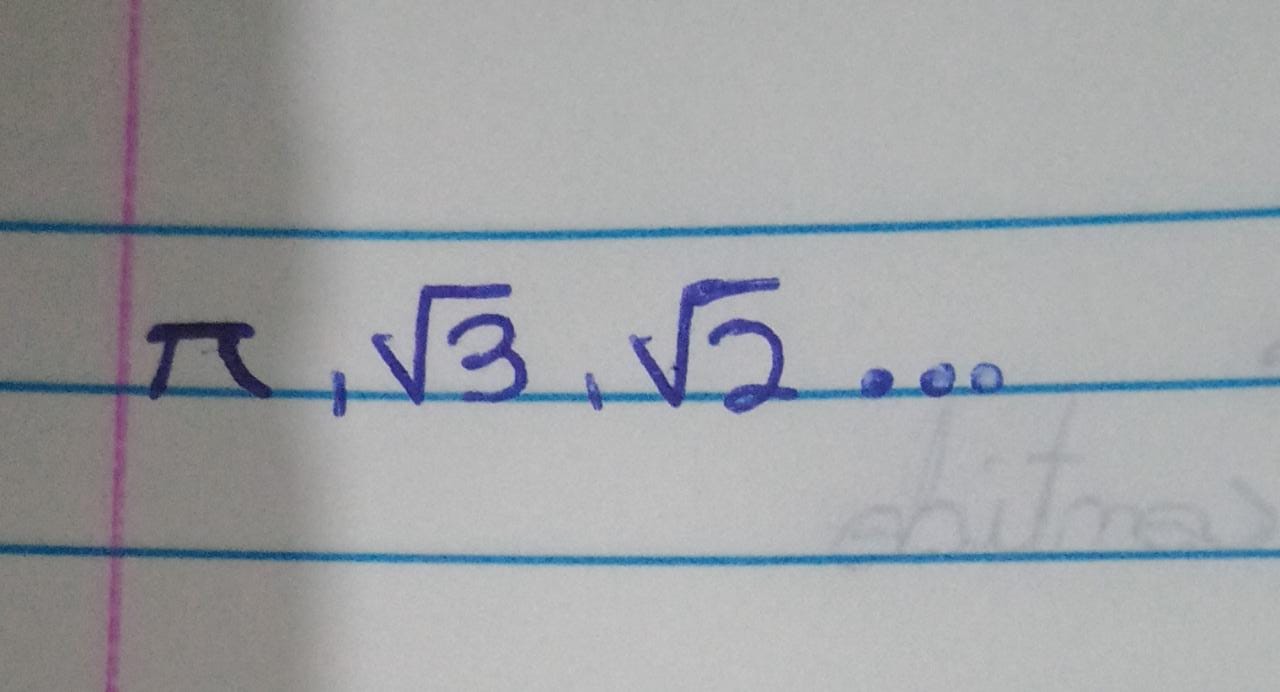 π, √3, √2...